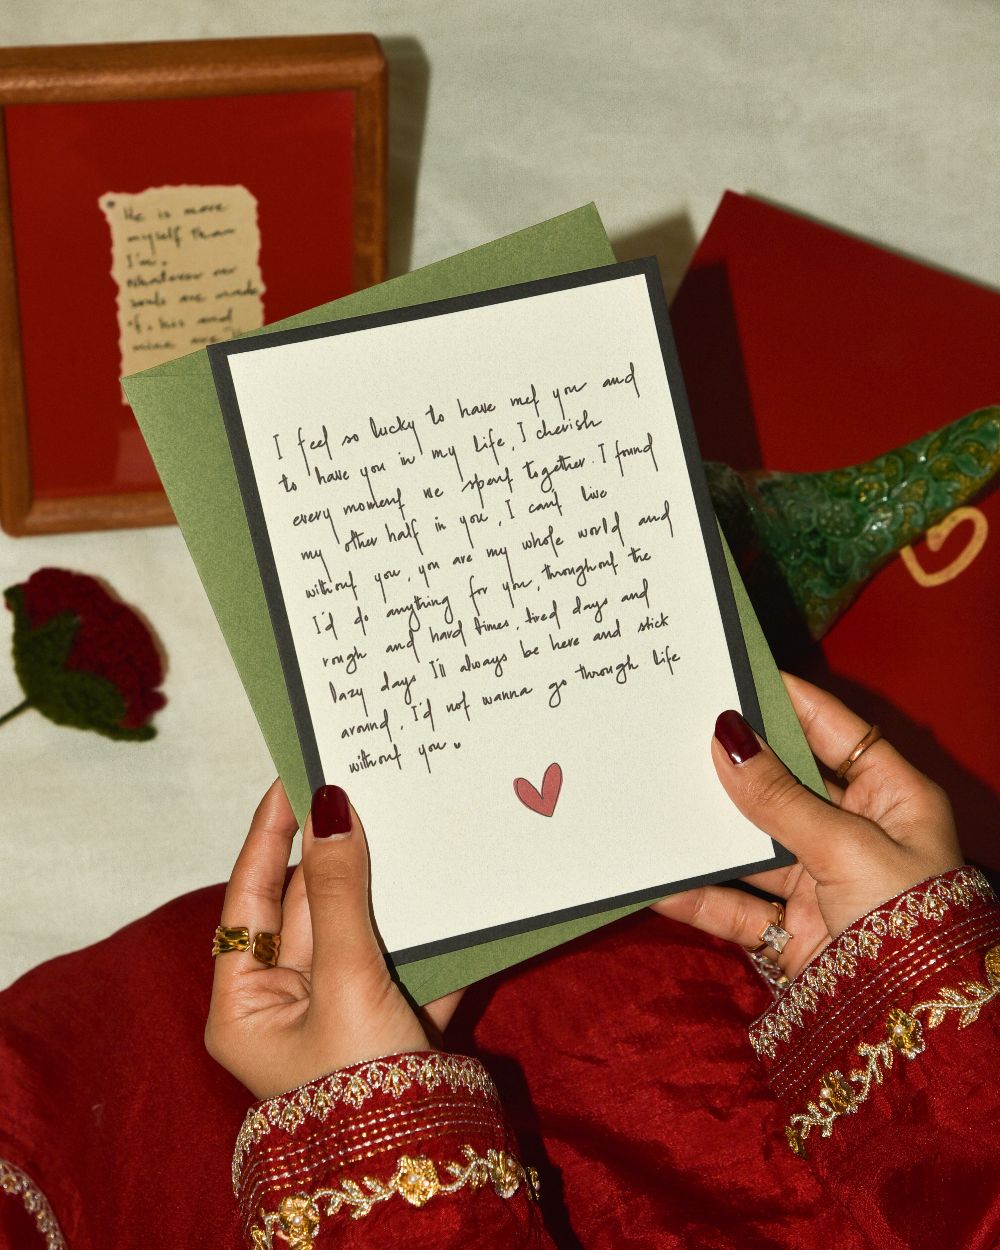 He is more
myself than
I'm.
Whatever our
souls are made
of, his and
mine are
I feel so lucky to have met you and
to have you in my life, I cherish
every moment we spent together. I found
my other half in you, I cant live
without you, you are my whole world and
I'd do anything for you, throughout the
rough and hard times, tired days and
lazy days I'll always be here and stick
around, I'd not wanna go through life
without you.